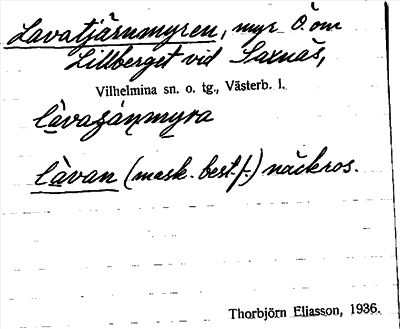 Lavatjärnmyren, myr Ö. om
Lillberget vid Saxnäs,
Vilhelmina sn. o. tg., Västerb. l.
làvan (mask. best. f.) näckros.
Thorbjörn Eliasson, 1936.